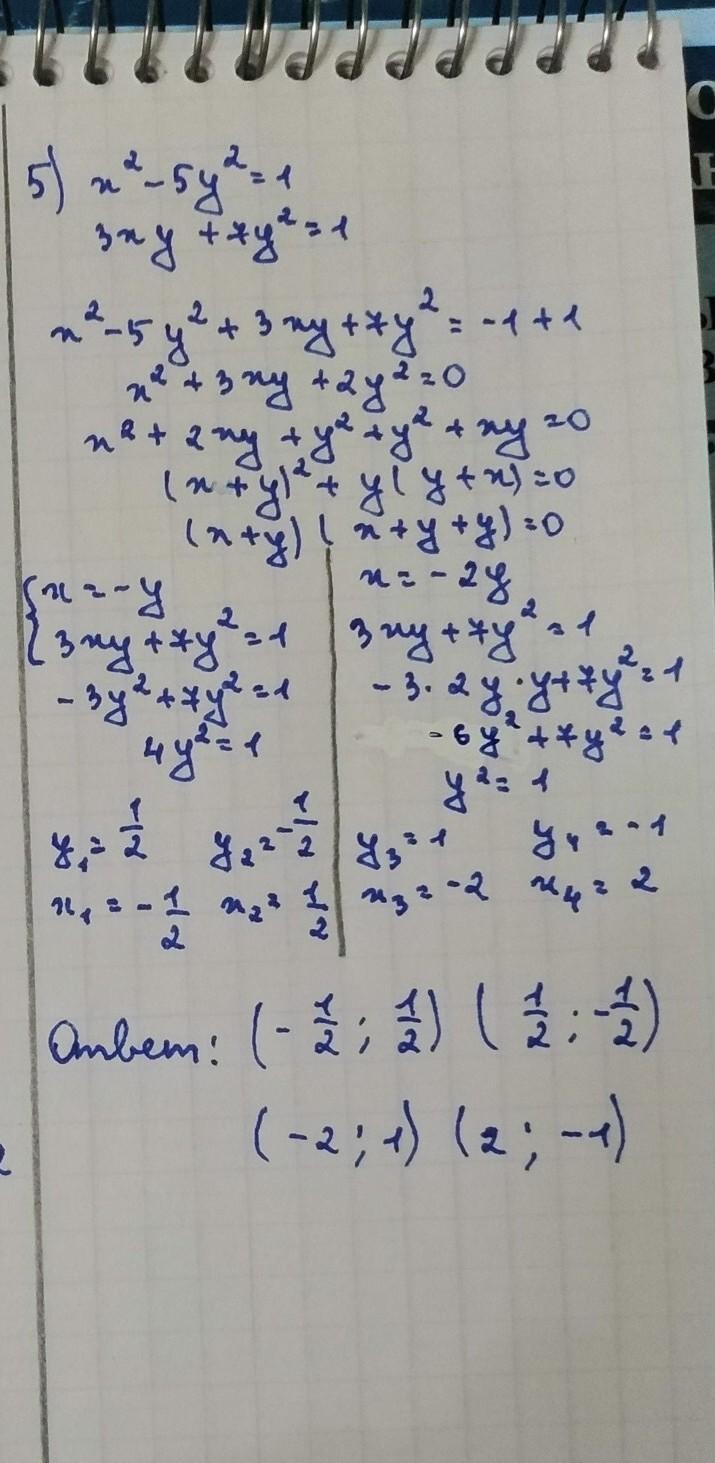 5) x² - 5y² = 1
3xy + 7y² = 1
x² - 5y² + 3xy + 7y² = -1 + 1
x² + 3xy + 2y² = 0
x² + 2xy + y² + y² + xy = 0
(x + y)² + y(y + x) = 0
(x + y)(x + y + y) = 0
{ x = -y
3xy + 7y² = 1
-3y² + 7y² = 1
4y² = 1
y₁ = 1/2 y₂ = -1/2
x₁ = -1/2 x₂ = 1/2
x = -2y
3xy + 7y² = 1
-3 · 2y · y + 7y² = 1
-6y² + 7y² = 1
y² = 1
y₃ = 1 y₄ = -1
x₃ = -2 x₄ = 2
Ответ: (-1/2; 1/2) (1/2; -1/2)
(-2; 1) (2; -1)